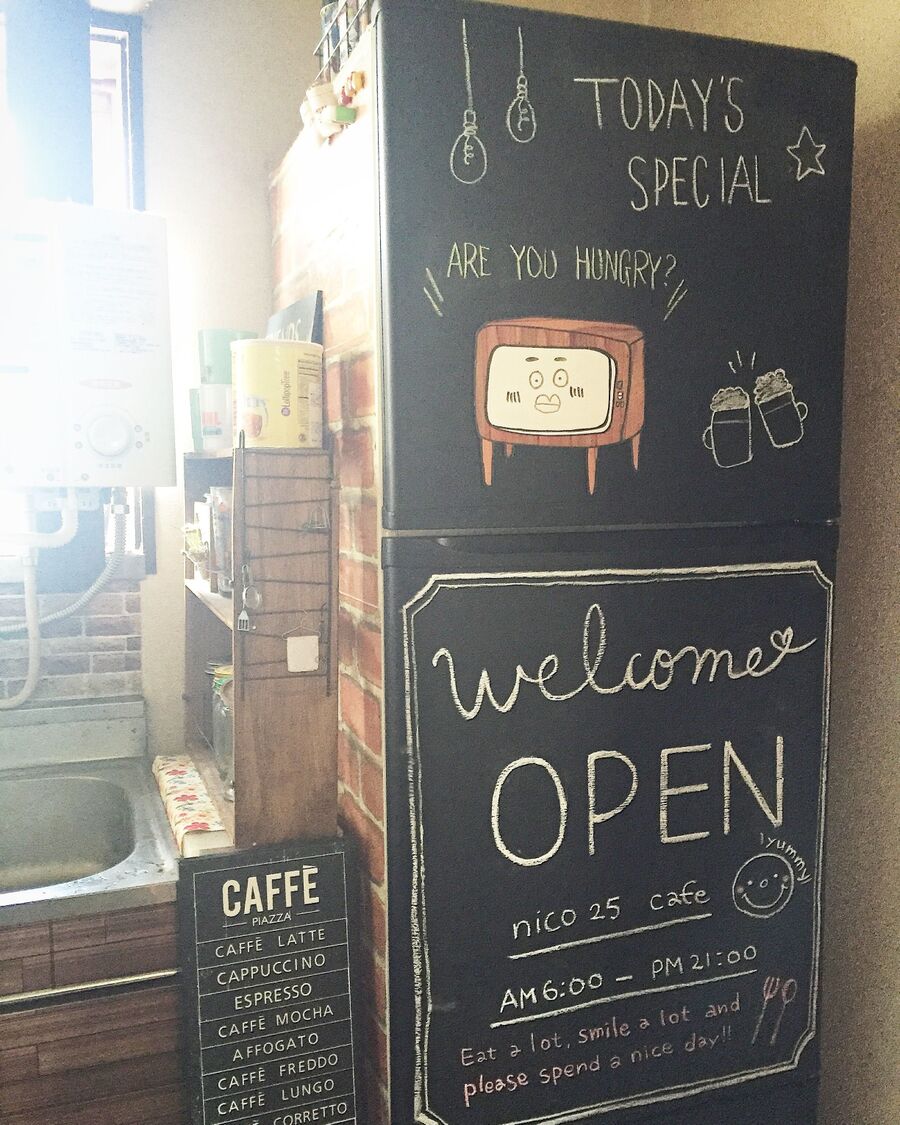 TODAY'S
SPECIAL
ARE YOU HUNGRY?
welcome
OPEN
yummy
nico 25 cafe
AM6:00 — PM21:00
Eat a lot, smile a lot and
please spend a nice day!!
LollipopTree
CAFFÈ
PIAZZA
CAFFÈ LATTE
CAPPUCCINO
ESPRESSO
CAFFÈ MOCHA
AFFOGATO
CAFFÈ FREDDO
CAFFÈ LUNGO
CORRETTO